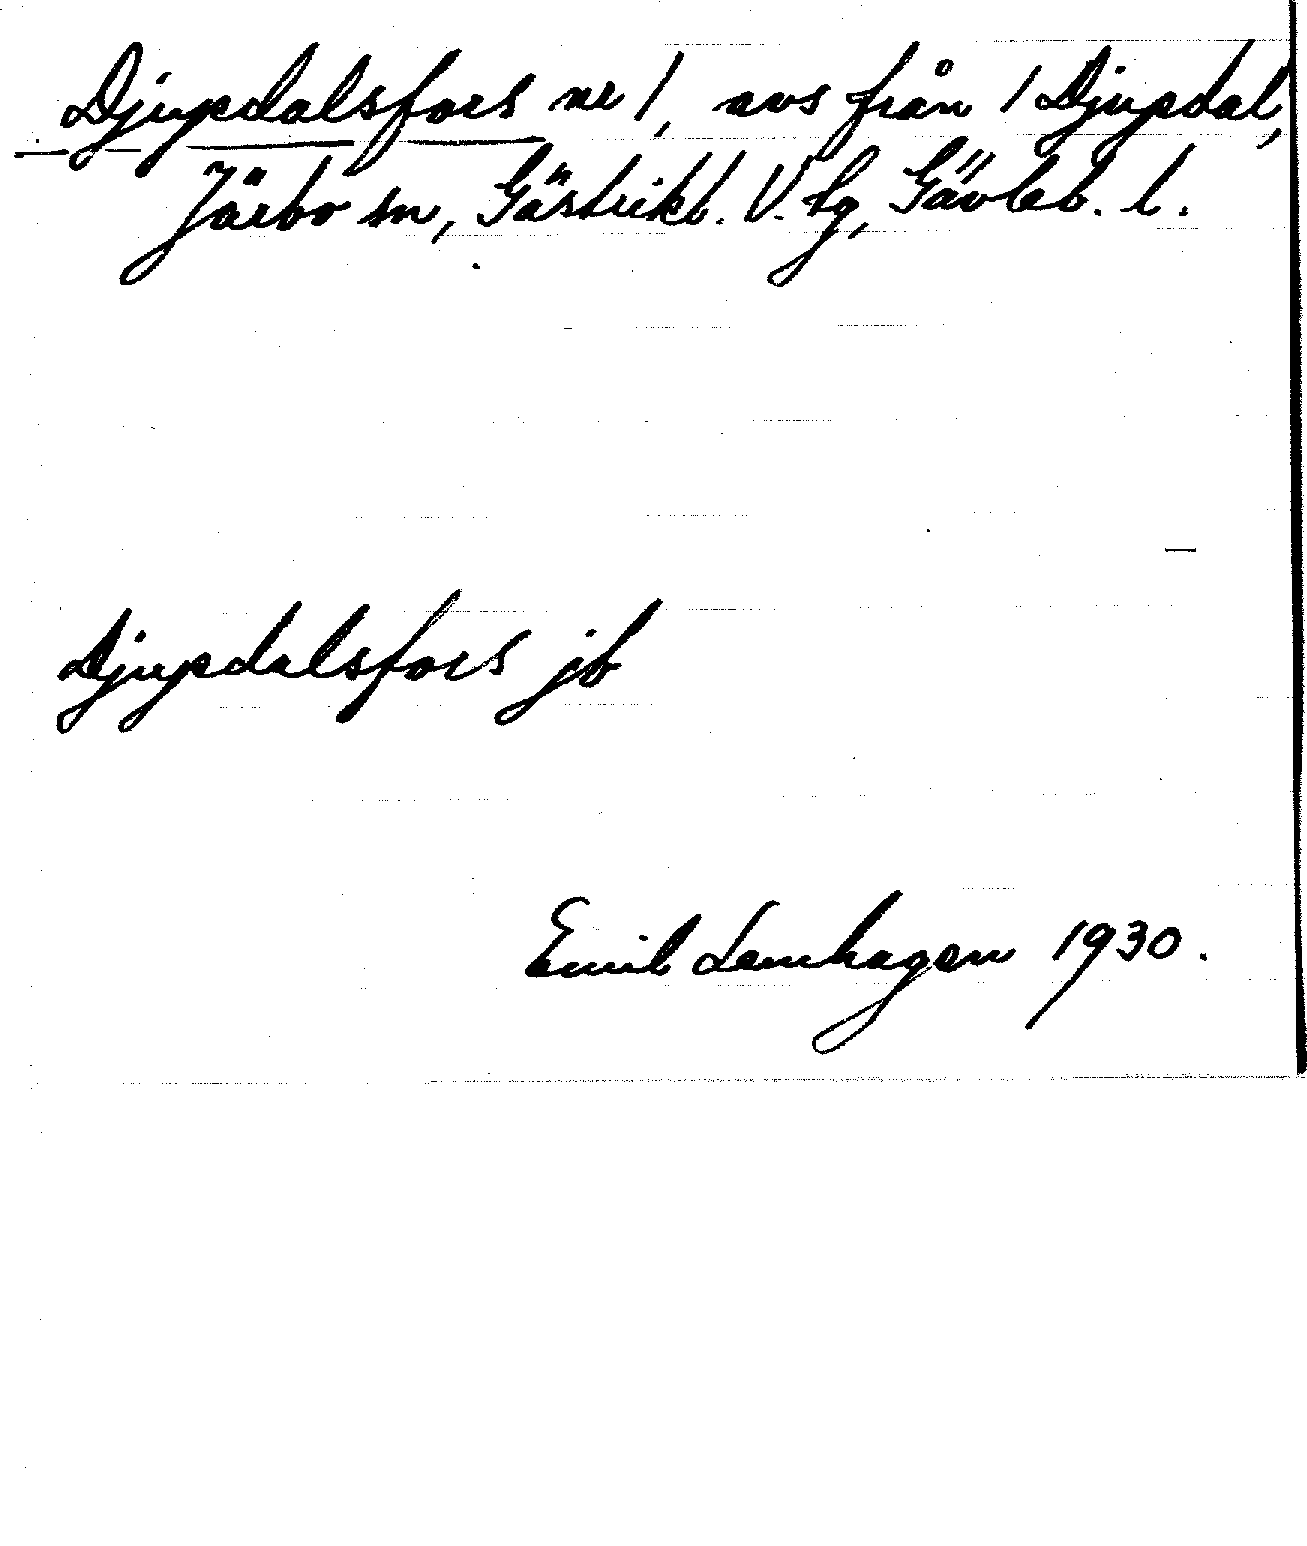 Djupdalsfors nr 1, avs från 1 Djupdal,
Järbo sn, Gästrikl. V. tg, Gävleb. l.
Djupdalsfors jb
Emil Lamhagen 1930.